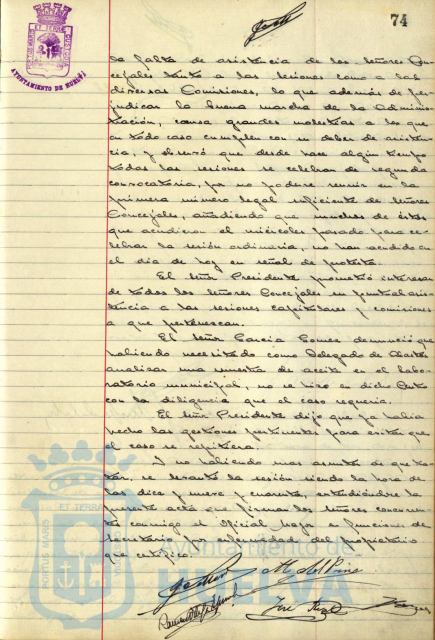 74
AYUNTAMIENTO DE HUELVA
la falta de asistencia de los señores Con-
cejales tanto a las sesiones como a las
diversas Comisiones, lo que además de per-
judicar la buena marcha de la Adminis-
tración, causa grandes molestias a los que
en todo caso cumplen con su deber de asisten-
cia, y observó que desde hace algún tiempo
todas las sesiones se celebran de segunda
convocatoria, por no poderse reunir en la
primera número legal suficiente de señores
Concejales, añadiendo que muchos de éstos
que acudieron el miércoles pasado para ce-
lebrar la sesión ordinaria, no han acudido en
el día de hoy en señal de protesta.
El señor Presidente prometió interesar
de todos los señores Concejales su puntual asis-
tencia a las sesiones capitulares y comisiones
a que pertenezcan.
El señor García Gómez denunció que
habiendo necesitado como Delegado de Abastos
analizar una muestra de aceite en el labo-
ratorio municipal, no se hizo en dicho Centro
con la diligencia que el caso requería.
El señor Presidente dijo que ya había
hecho las gestiones pertinentes para evitar que
el caso se repitiera.
Y no habiendo más asuntos de que tra-
tar, se levantó la sesión siendo la hora de
las diez y nueve y cuarenta, extendiéndose la
presente acta que firman los señores concurren-
tes conmigo el Oficial Mayor en funciones de
Secretario por enfermedad del propietario
que certifico.
PORTUS MARIS ET TERRAE
Ayuntamiento de
HUELVA